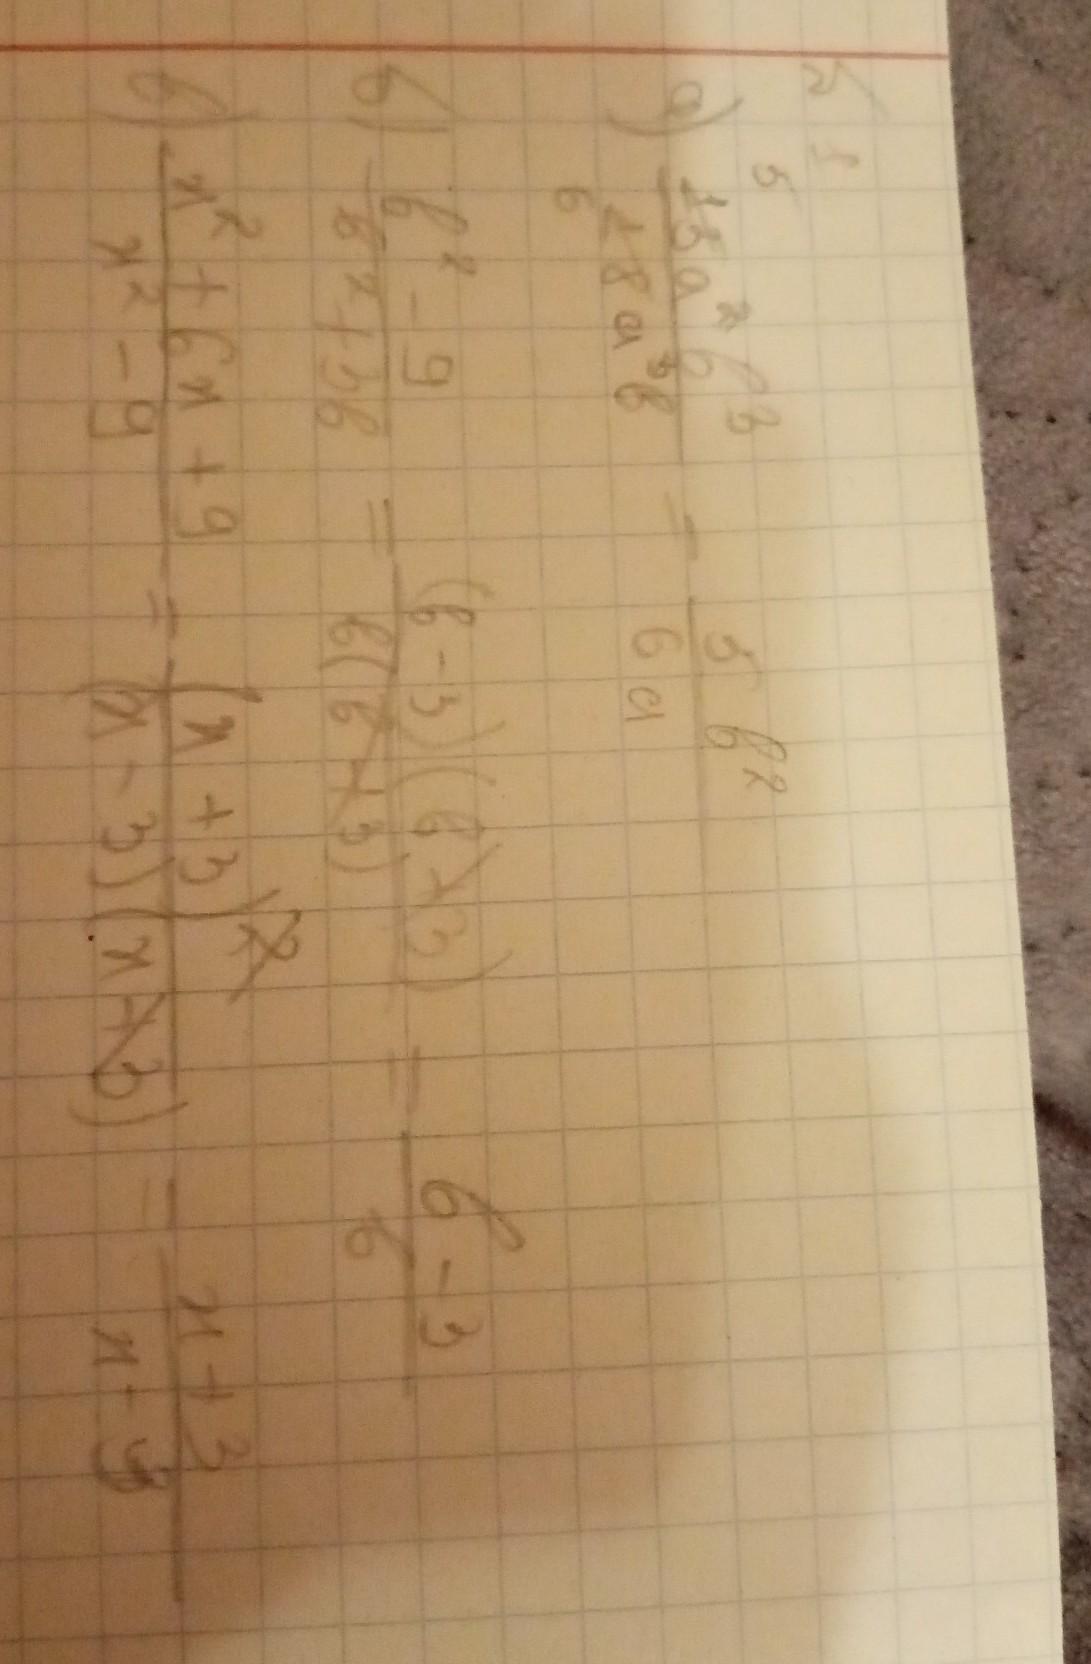 № 1
а) 15a²b³ / 18a³b = 5b² / 6a
5
6
б) b² - 9 / b² + 3b = (b - 3)(b + 3) / b(b + 3) = b - 3 / b
в) x² + 6x + 9 / x² - 9 = (x + 3)² / (x - 3)(x + 3) = x + 3 / x -